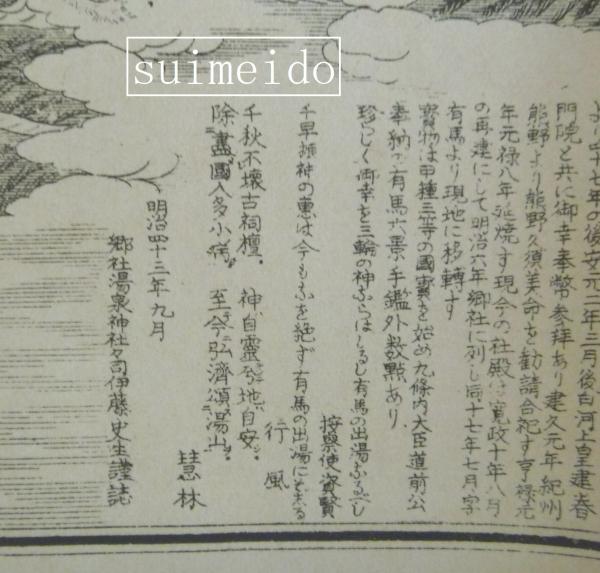 suimeido
より四十七年の後安元二年三月後白河上皇建春
門院と共に御幸奉幣参拝あり建久元年紀州
熊野より熊野久須美命を勧請合祀す享禄元
年元禄八年延焼す現今の社殿は寛政十年八月
の再建にして明治六年郷社に列し同十七年七月字
有馬より現地に移転す
寳物は甲種三等の國寳を始め九條内大臣道前公
奉納の有馬六景手鑑外数點あり
珍らしく御幸を三輪の神ならはしるし有馬の出湯なるべし
按察使資賢
千早振神の恵は今もなを絶ず有馬の出湯にこそ
行風
千秋不壊古祠壇。 神自靈兮地自安。
除盡國人多小病。 至今弘濟頌湯山。
慧林
明治四十三年九月
郷社湯泉神社々司伊藤史生謹誌